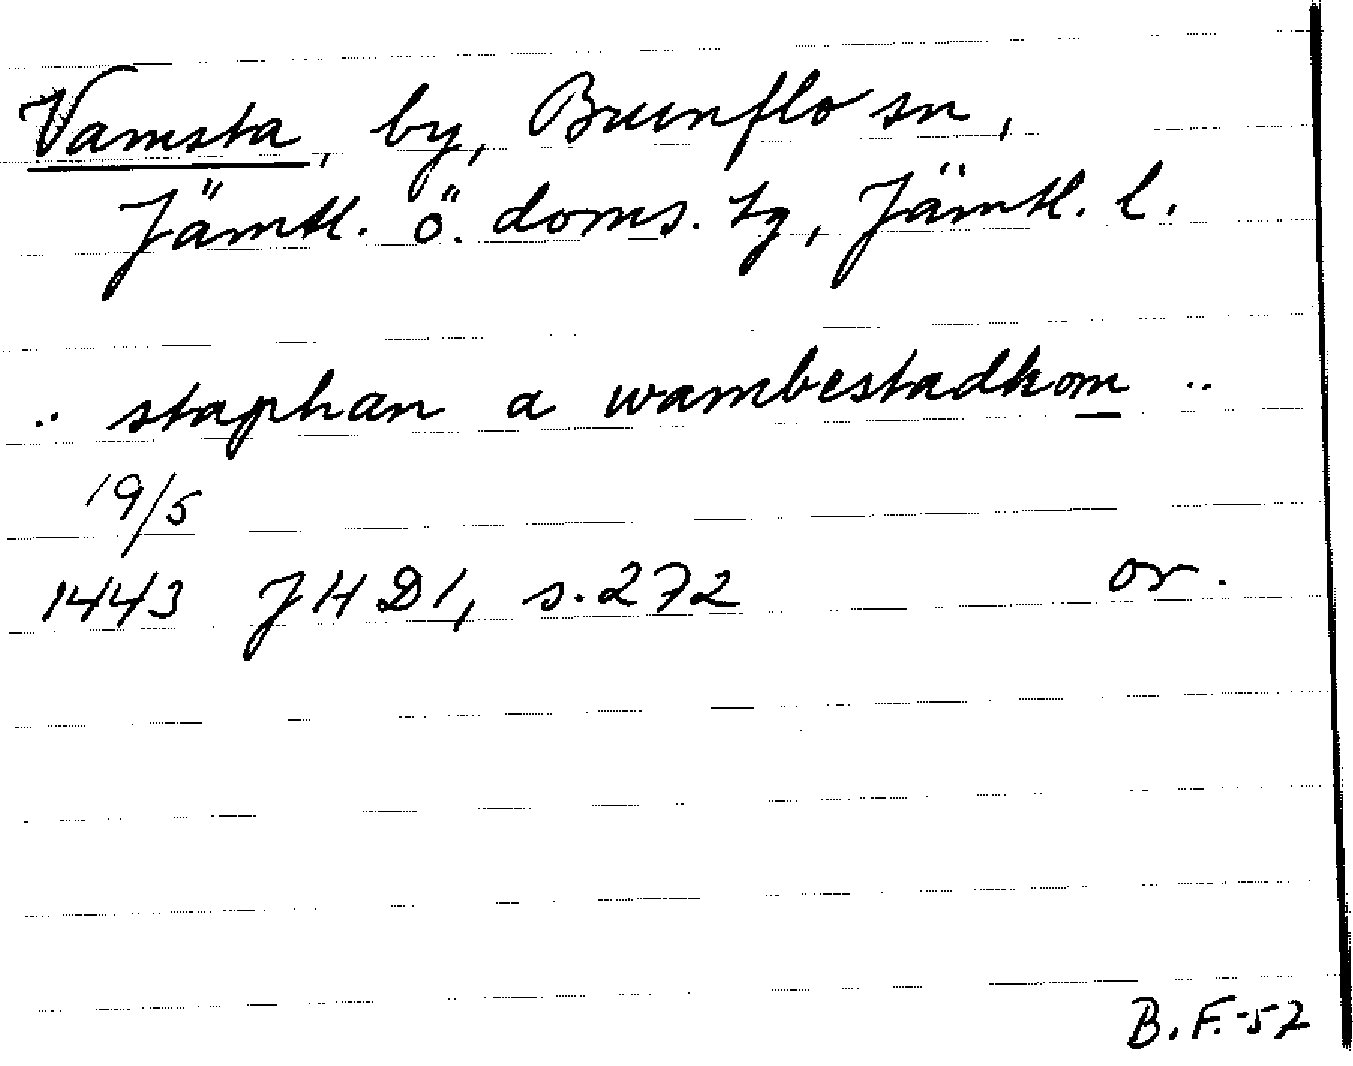 Vamsta, by, Brunflo sn,
Jämtl. ö. doms. tg, Jämtl. l.
.. staphan a wambestadhom ..
19/5
1443 JHD1, s.272 or.
B.F.-52